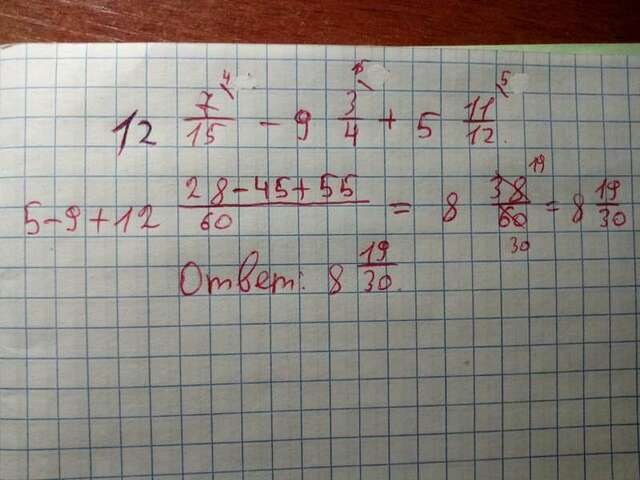 12 7/15 ⁴ - 9 3/4 ¹⁵ + 5 11/12 ⁵.
5-9+12 28-45+55/60 = 8 38/60 ¹⁹ ₃₀ = 8 19/30
Ответ: 8 19/30.